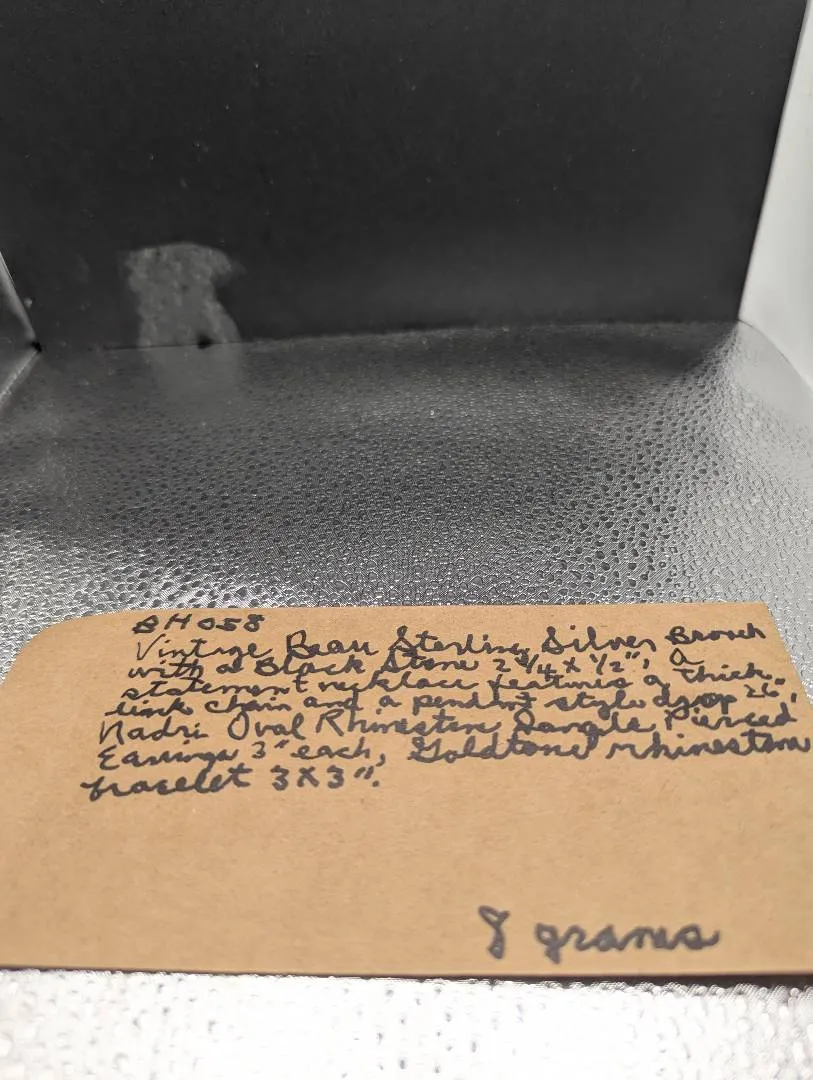 BH 058
Vintage Beau Sterling Silver Brooch
with a Black Stone 2 3/4 x 1/2", a
statement necklace features a thick
link chain and a pendant style drop 26",
Nadri Oval Rhinestone Dangle Pierced
Earrings 3" each, Goldtone rhinestone
bracelet 3 X 3".
8 grams